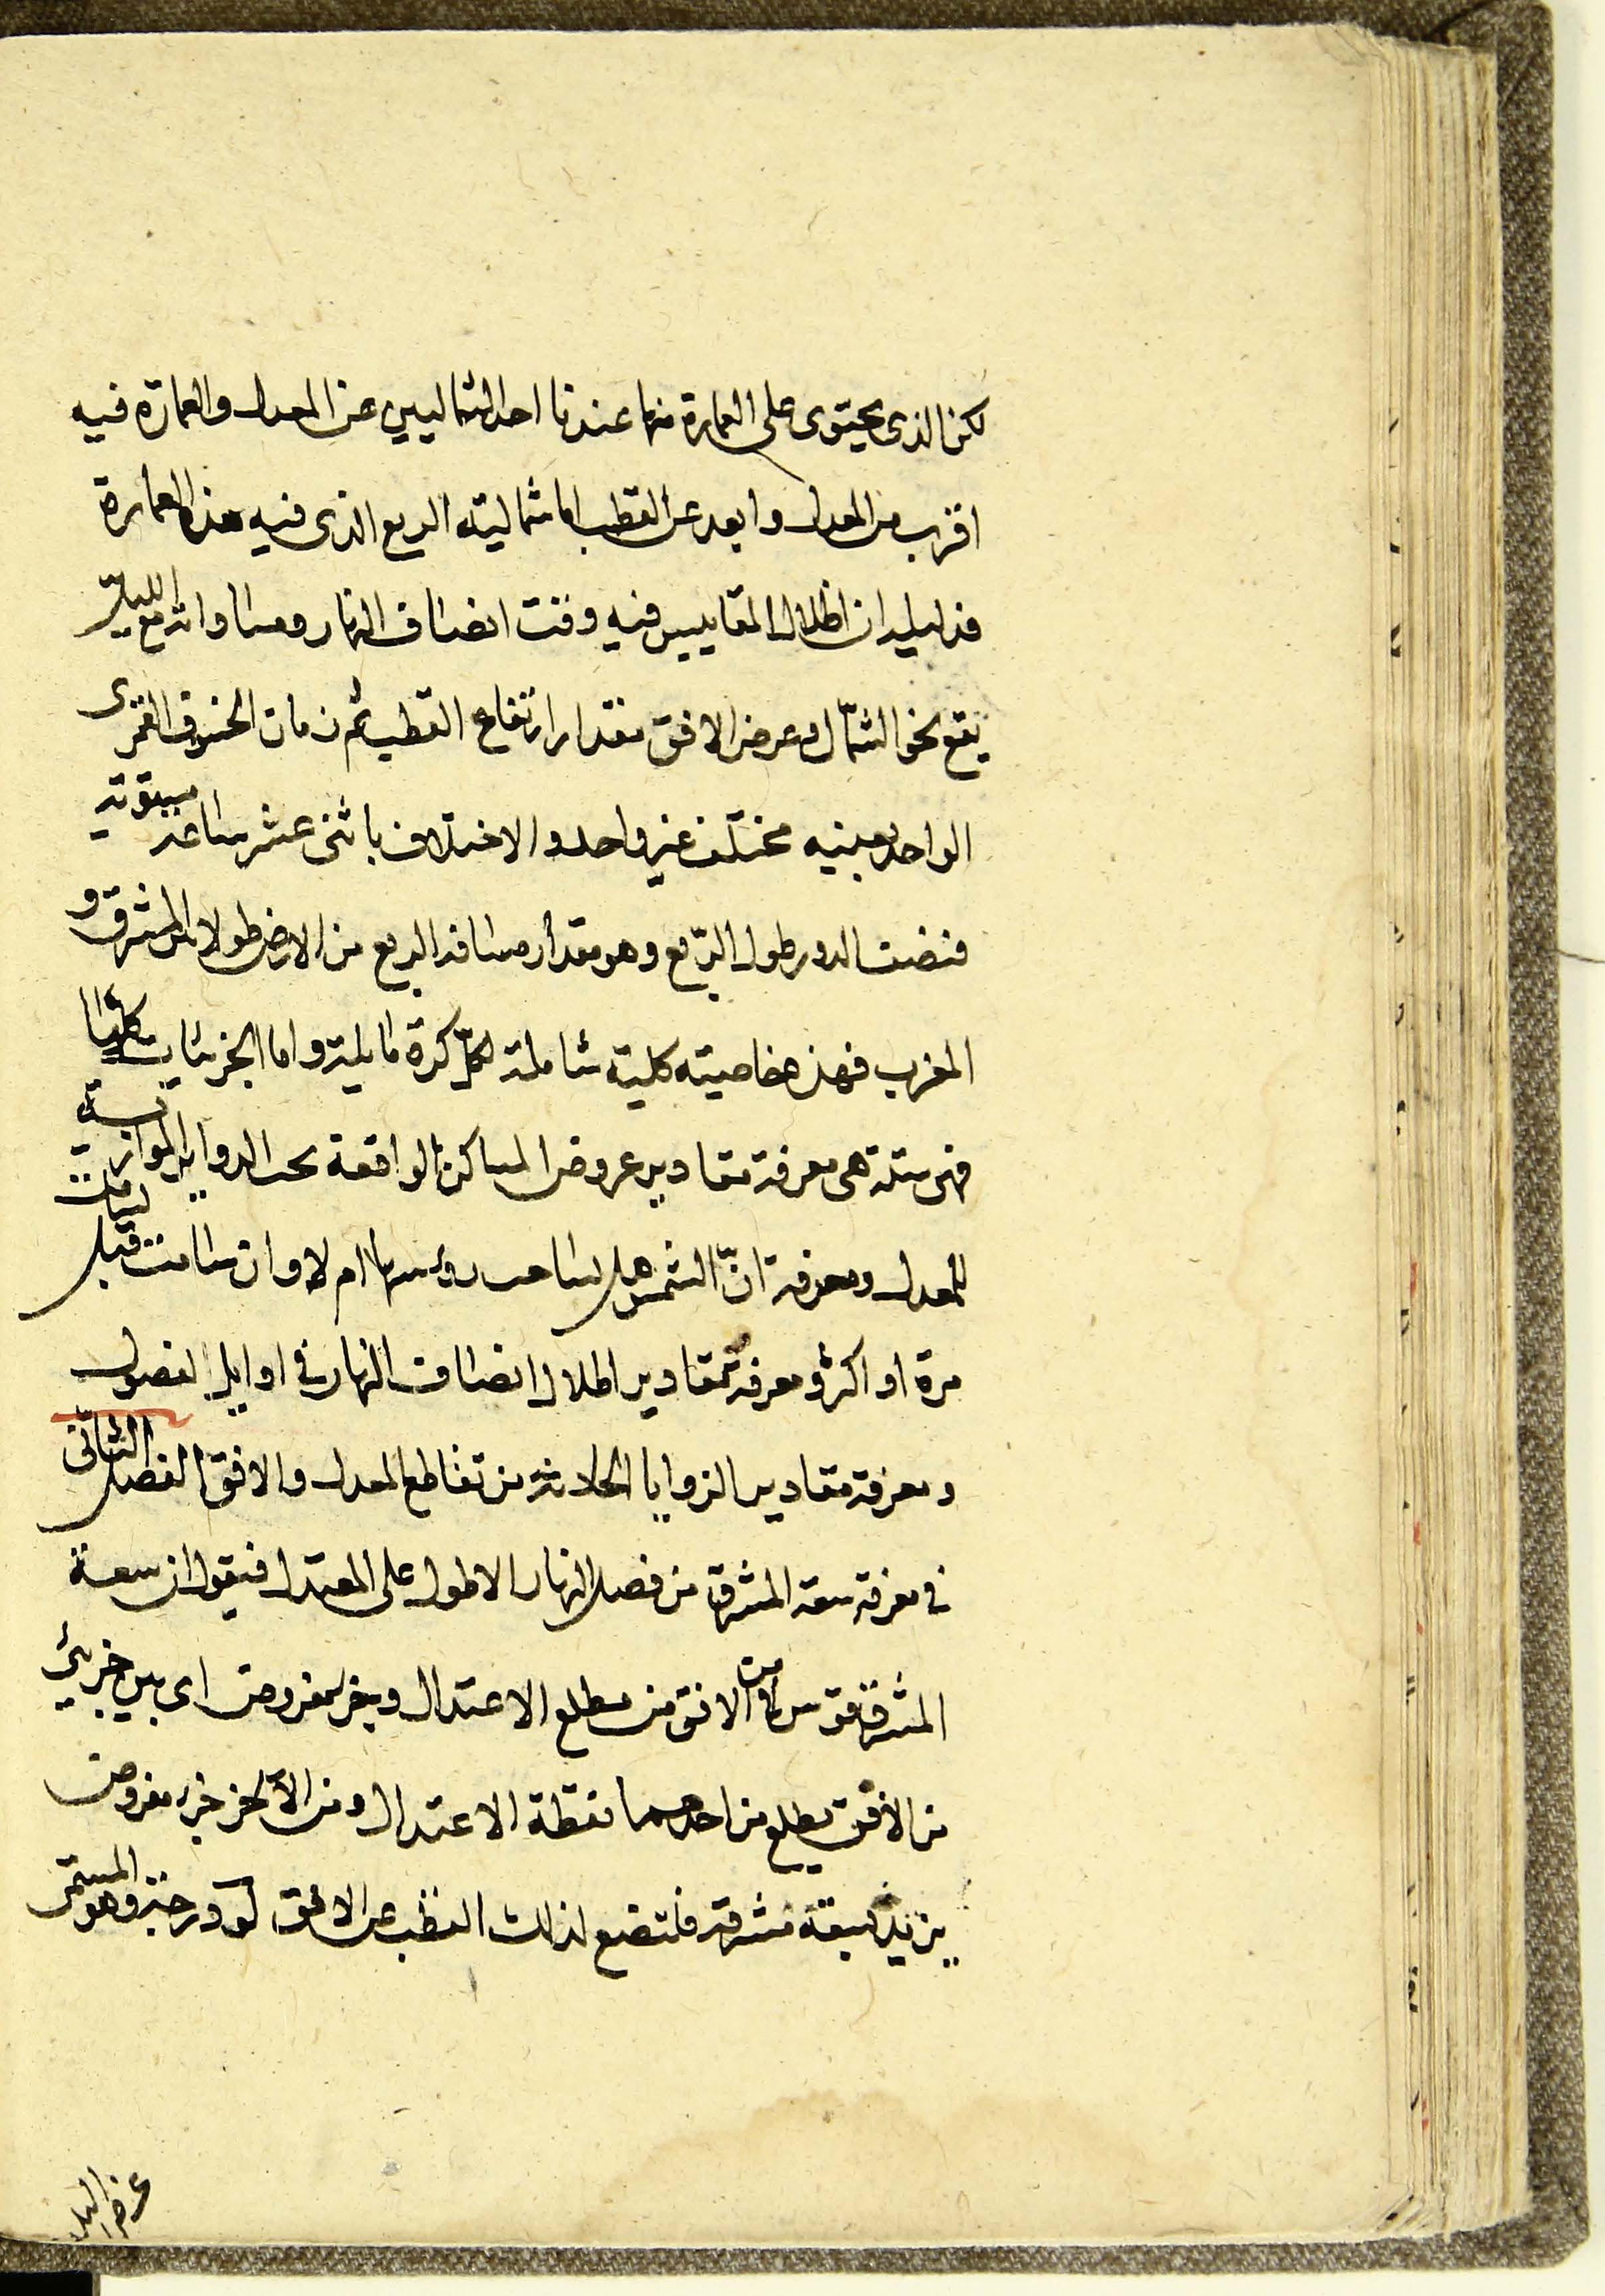 لكن الذى يحتوى على العمارة منها عندنا احد الشماليين عن المعدل والعمارة فيه
اقرب من المعدل وابعد عن القطب اما شمالية الربع الذى فيه هذه العمارة
فدليله ان اظلال المقاييس فيه وقت انصاف النهار ومساواته مع الليل
يقع نحو الشمال وعرض الافق مقدار ارتفاع القطب ثم زمان الخسوف القمرى
الواحد بعينه مختلف غير واحد والاختلاف باثنى عشر ساعة مستوية
فنصف الدور طول الربع وهو مقدار مسافة الربع من الارض طولا من المشرق و
المغرب فهذه خاصية كلية شاملة لكل كرة مايلة واما الجزئيات
فهى ستة هى معرفة مقادير عروض المساكن الواقعة تحت الدواير الموازية
للمعدل ومعرفة انّ الشمس هل تسامت رؤسها ام لا وان سامتت قبل
مرة او اكثر ومعرفة مقادير اظلال انصاف النهار فى اوايل الفصول
ومعرفة مقادير الزوايا الحادثة من تقاطع المعدل والافق الفصل الثانى
فى معرفة سعة المشرق من فضل النهار الاطول على المعتدل فيقول ان سعة
المشرق قوس ما من الافق من مطلع الاعتدال وجزء مفروض اى بين جزئى
من الافق يطلع من احدهما نقطة الاعتدال ومن الآخر جزء مفروض
يزيد سعة مشرقه فلنضع لذلك القطب عن الافق لو درجة وهو المستمر
عرض البلد